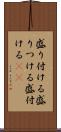 盛り付ける盛
りつける盛付
ける